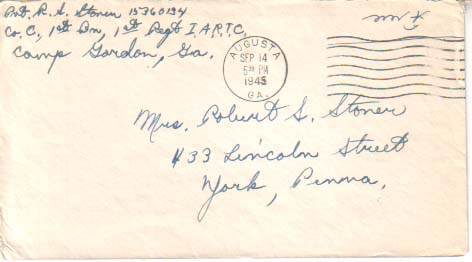 Pvt. R. S. Stoner 15360194
Co. C, 1st Bn, 1st Regt I.A.R.T.C.
Camp Gordon, Ga.
Free
AUGUSTA
SEP 14
5 PM
1945
GA.
Mrs. Robert S. Stoner
433 Lincoln Street
York, Penna,